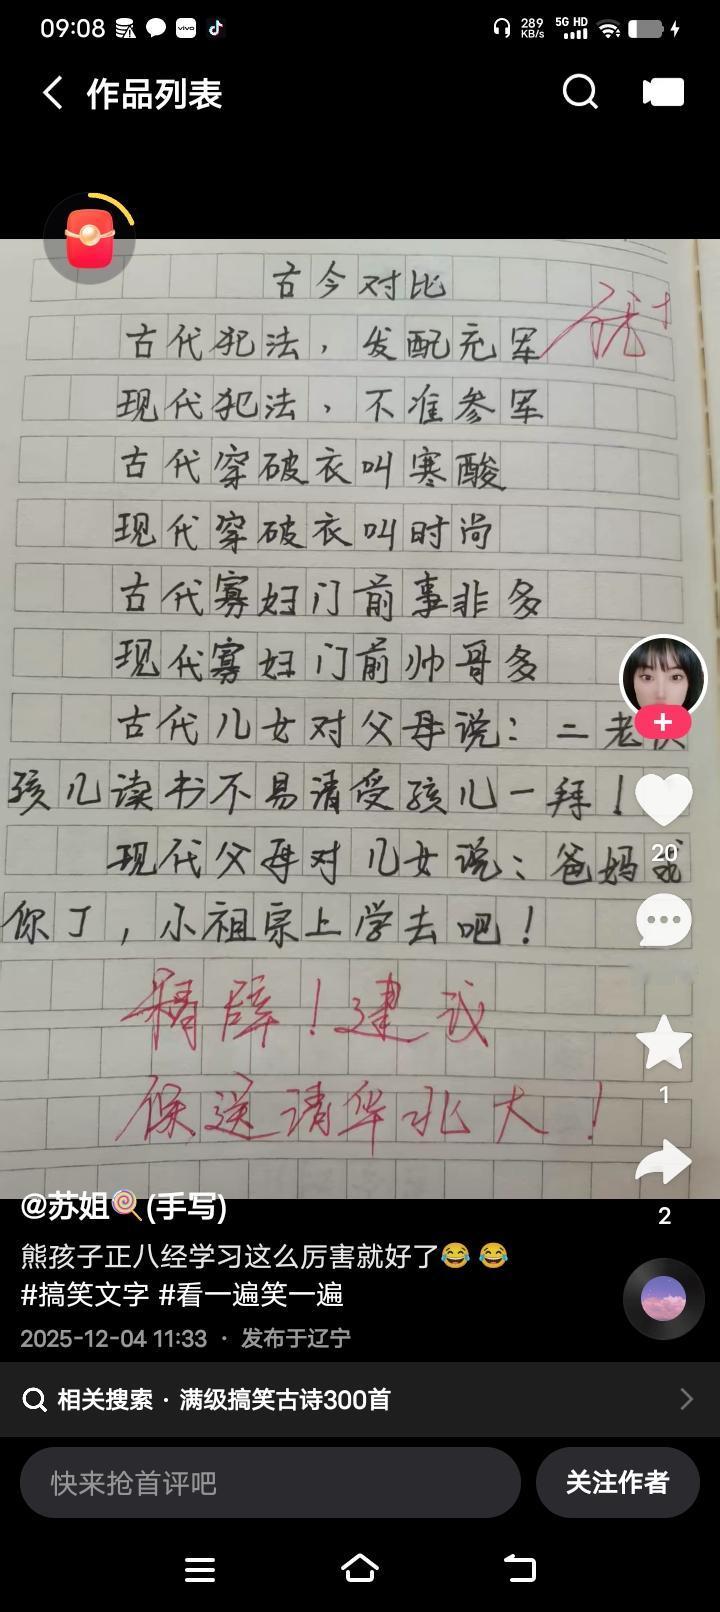 09:08
vivo
289 KB/s
5G HD
作品列表
古今对比
优+
古代犯法，发配充军
现代犯法，不准参军
古代穿破衣叫寒酸
现代穿破衣叫时尚
古代寡妇门前事非多
现代寡妇门前帅哥多
古代儿女对父母说：二老
孩儿读书不易请受孩儿一拜！
现代父母对儿女说：爸妈求
你了，小祖宗上学去吧！
精辟！建议
保送请华北大！
20
1
2
@苏姐🍭(手写)
熊孩子正八经学习这么厉害就好了😂😂
#搞笑文字 #看一遍笑一遍
2025-12-04 11:33 · 发布于辽宁
相关搜索 · 满级搞笑古诗300首
快来抢首评吧
关注作者